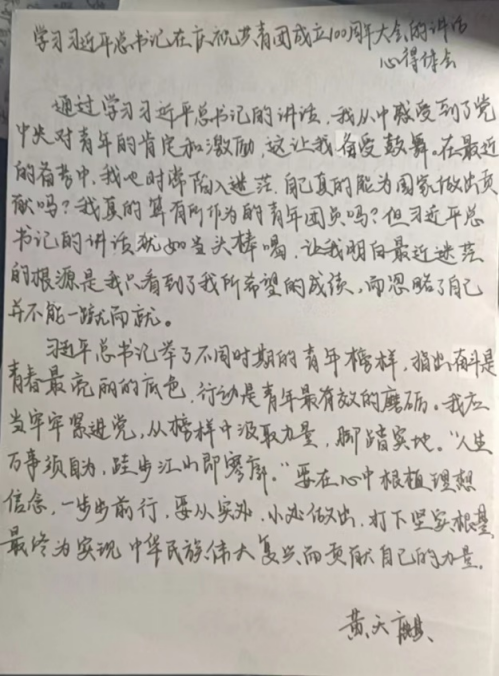 学习习近平总书记在庆祝共青团成立100周年大会的讲话
心得体会
通过学习习近平总书记的讲话，我从中感受到了党
中央对青年的肯定和激励，这让我备受鼓舞。在最近
的备考中，我也时常陷入迷茫，自己真的能为国家做出贡
献吗？我真的算有所作为的青年团员吗？但习近平总
书记的讲话犹如当头棒喝，让我明白最近迷茫
的根源是我只看到了我所希望的成绩，而忽略了自己
并不能一蹴而就。
习近平总书记举了不同时期的青年榜样，指出奋斗是
青春最亮丽的底色，行动是青年最有效的磨砺。我应
当牢牢紧进党，从榜样中汲取力量，脚踏实地。“人生
万事须自为，跬步江山即寥廓。”要在心中根植理想
信念，一步步前行，要从实处、小处做出，打下坚实根基，
最终为实现中华民族伟大复兴而贡献自己的力量。
黄天麒